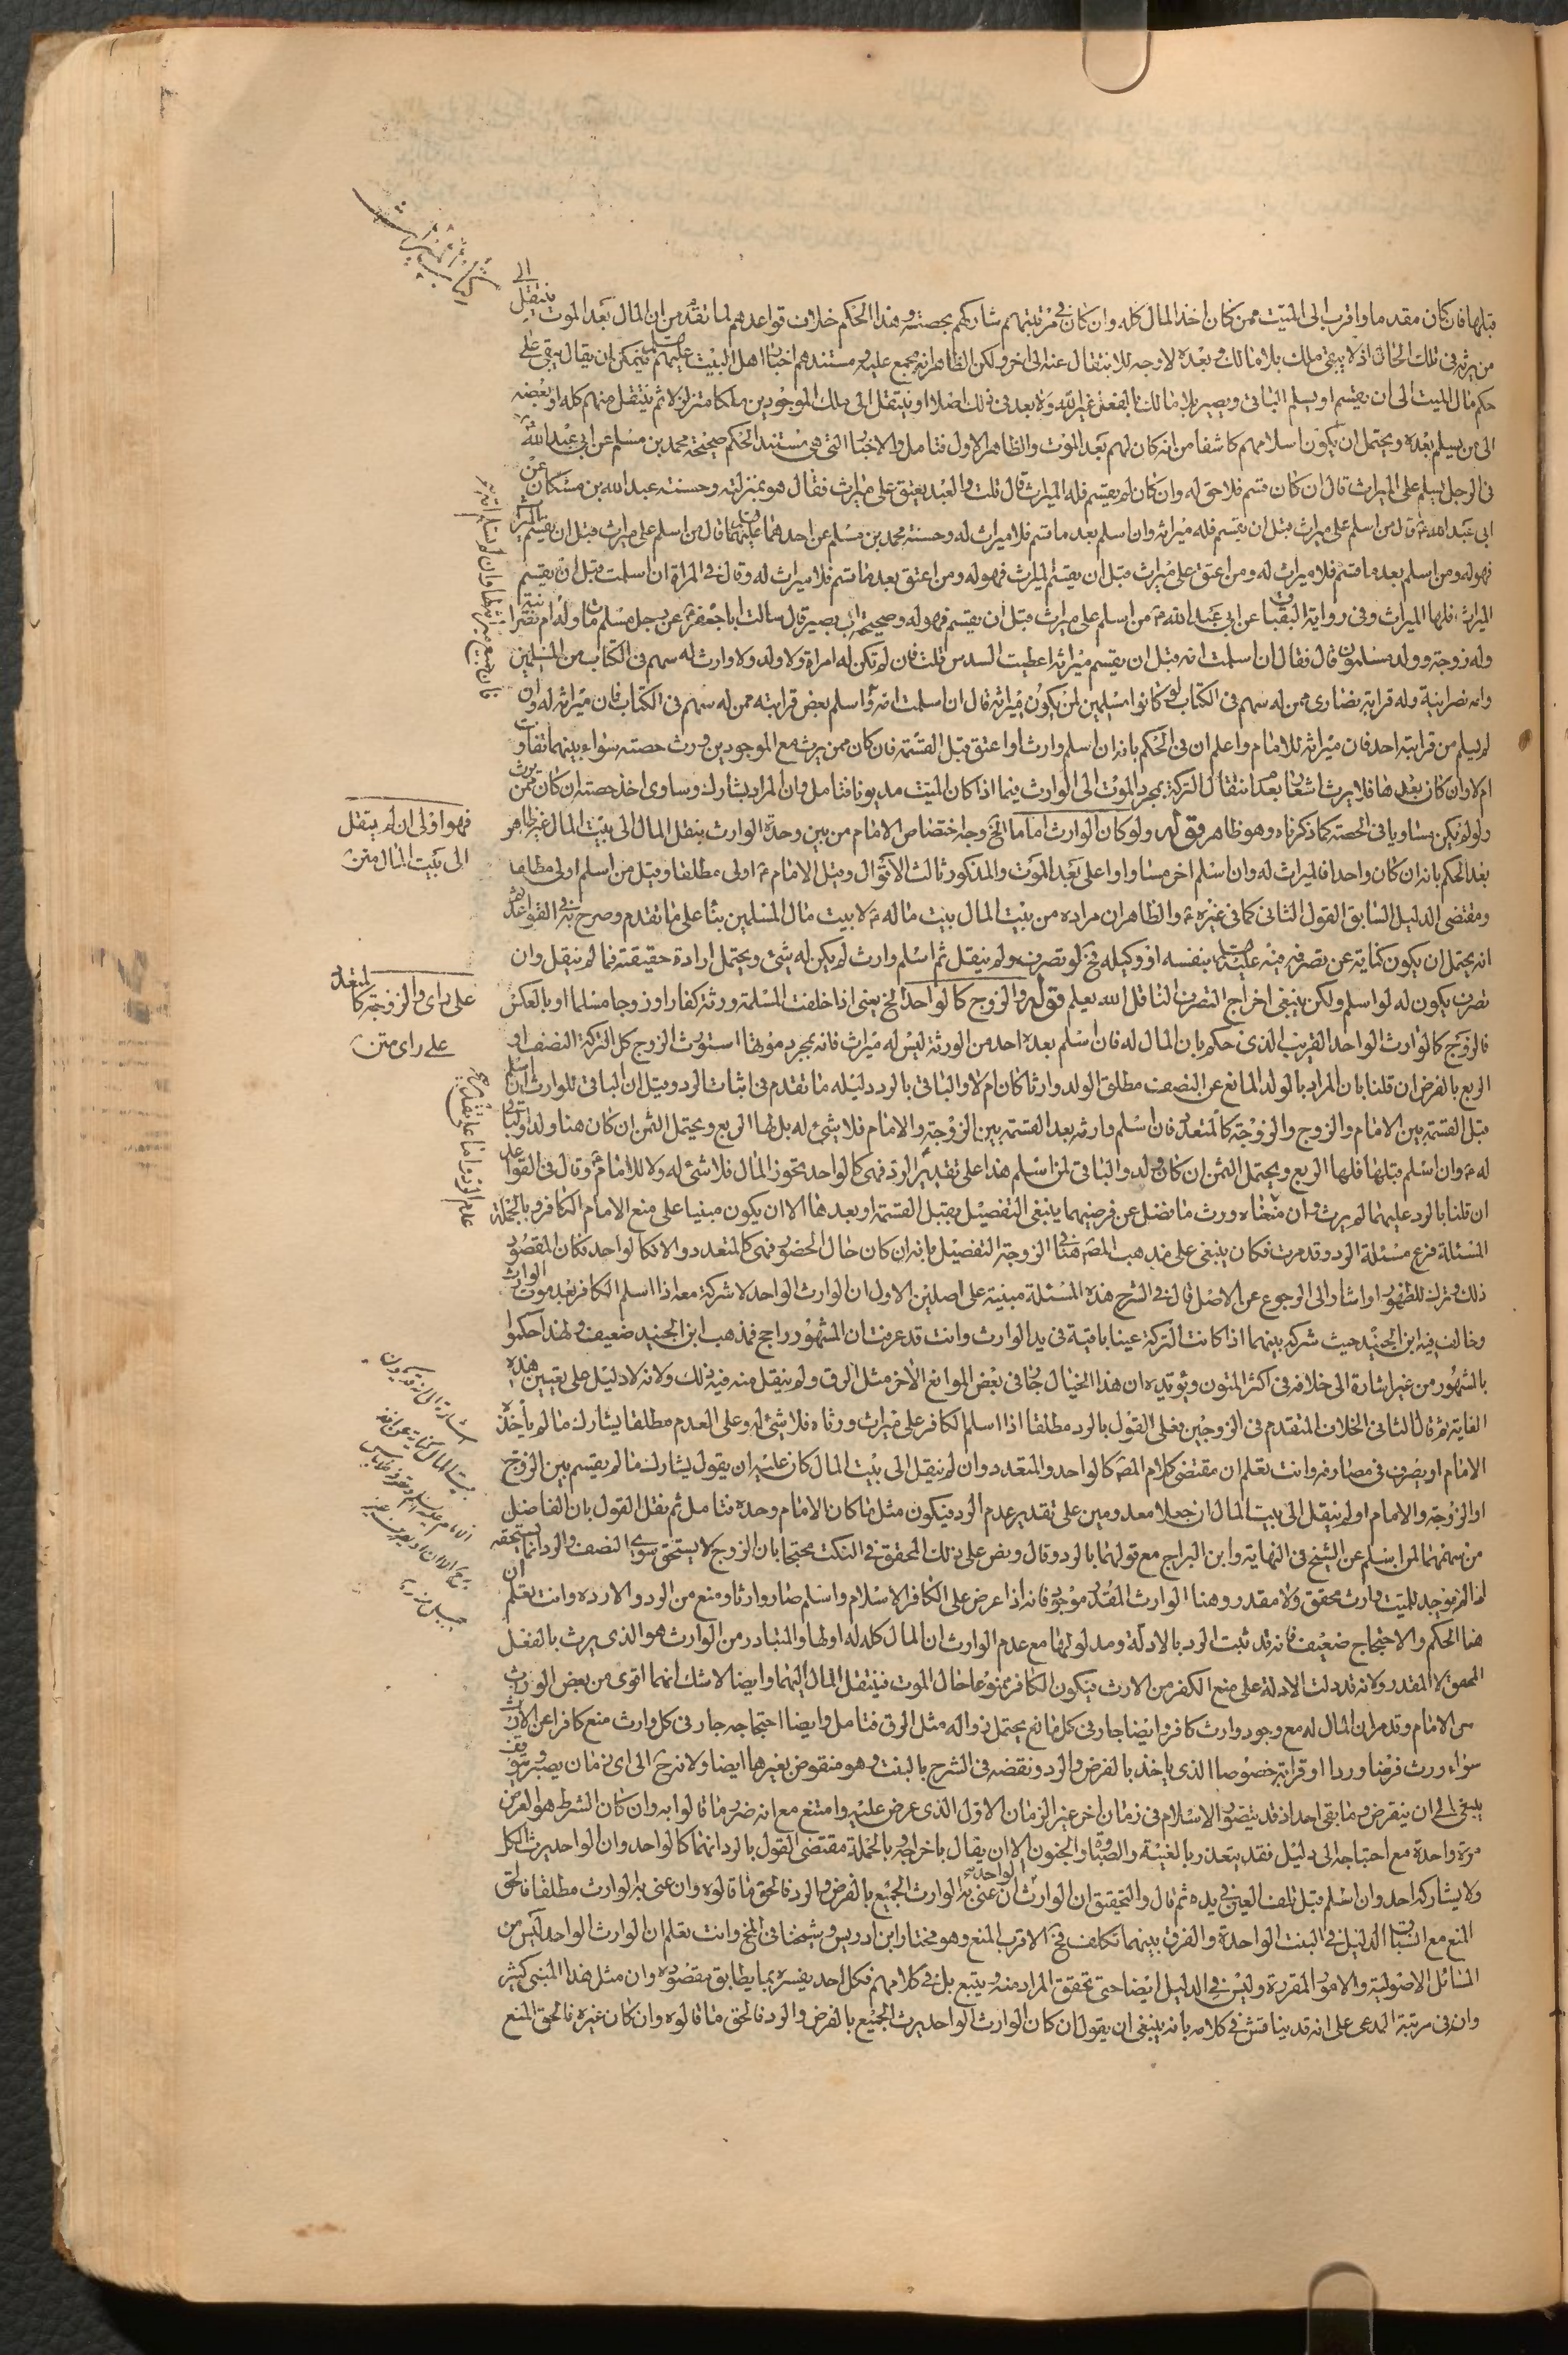 كتاب الميراث
قبلها فان كان مقدما واقرب الى الميت ممن كان اخذ المال كله وان كان في مرتبتهم شاركهم بحصته وهذا الحكم خلاف قواعدهم لما تقدم من ان المال بعد الموت ينتقل الى
من يرثه في تلك الحال اذ لا يبقى ملك بلا مالك وبعده لا وجه للانتقال عنه الى اخر ولكن الظاهر انه مجمع عليه ومستندهم اخبار اهل البيت عليهم فيمكن ان يقال يبقى على
حكم مال الميت الى ان يقسم او يسلم الباقي ويصير بلا مالك بالفعل غير الله ولا بعد في ذلك اصلا او ينتقل الى ملك الموجودين ملكا متزلزلا ثم ينتقل منهم كله او بعضه
الى من يسلم بعده ويحتمل ان يكون اسلامهم كاشفا من انه كان لهم بعد الموت والظاهر الاول فتامل والاخبار التي هي مستند الحكم صحيحة محمد بن مسلم عن ابي عبد الله
في الرجل يسلم على الميراث قال ان كان قسم فلا حق له وان كان لم يقسم فله الميراث قال قلت والعبد يعتق على ميراث فقال هو بمنزلته وحسنة عبد الله بن مسكان عن
ابي عبد الله قال من اسلم على ميراث قبل ان يقسم فله ميراثه وان اسلم بعد ما قسم فلا ميراث له وحسنة محمد بن مسلم عن احدهما قال من اسلم على ميراث قبل ان يقسم الميراث
فهو له ومن اسلم بعد ما قسم فلا ميراث له ومن اعتق على ميراث قبل ان يقسم الميراث فهو له ومن اعتق بعد ما قسم فلا ميراث له وقال في المراة ان اسلمت قبل ان يقسم
الميراث فلها الميراث وفي رواية البقباق عن ابي عبد الله من اسلم على ميراث قبل ان يقسم فهو له وصحيحة ابي بصير قال سالت ابا جعفر عن رجل مسلم مات وله ام نصرانية
وله زوجة وولد مسلمون قال فقال ان اسلمت امه قبل ان يقسم ميراثه اعطيت السدس قلت فان لم تكن له امراة ولا ولد ولا وارث له سهم في الكتاب من المسلمين
وامه نصرانية وله قرابة نصارى ممن له سهم في الكتاب لو كانوا مسلمين لمن يكون ميراثه قال ان اسلمت امه واسلم بعض قرابته ممن له سهم في الكتاب فان ميراثه له وان
لم يسلم من قرابته احد فان ميراثه للامام واعلم ان في الحكم بانه ان اسلم وارث او اعتق قبل القسمة فان كان ممن يرث مع الموجودين ورث حصته سواء بينهما تفاوت
ام لا وان كان بعدها فلا يرث اشعارا بعدم انتقال التركة بمجرد الموت الى الوارث فيما اذا كان الميت مديونا فتامل وان المراد يشارك وساوى اخذ حصته ان كان ممن يرث
ولو لم يكن مساويا في الحصة كما ذكرناه وهو ظاهر قوله ولو كان الوارث اماما الخ وجه اختصاص الامام من بين وحدة الوارث بنقل المال الى بيت المال غير ظاهر
بعد الحكم بانه ان كان واحدا فالميراث له وان اسلم اخر مساو او اعلى بعد الموت والمذكور ثالث الاقوال وقيل الامام اولى مطلقا وقيل من اسلم اولى مطلقا
ومقتضى الدليل السابق القول الثاني كما في غيره والظاهر ان مراده من بيت المال بيت ماله لا بيت مال المسلمين بناء على ما تقدم وصرح به في القواعد
انه يحتمل ان يكون كناية عن تصرفه فيه بنفسه او وكيله فح لو تصرف ولم ينقل ثم اسلم وارث لم يكن له شئ ويحتمل ارادة حقيقته فما لم ينقل وان
تصرف يكون له لو اسلم ولكن ينبغي اخراج التصرف الناقل الله يعلم قوله والزوج كالواحد الخ يعني اذا خلفت المسلمة ورثة كفارا وزوجا مسلما او بالعكس
فالزوج كالوارث الواحد القريب الذي حكم بان المال له فان اسلم بعده احد من الورثة ليس له ميراث فانه بمجرد موتها استورث الزوج كل التركة النصف او
الربع بالفرض ان قلنا بان المراد بالولد المانع عن النصف مطلق الولد وارثا كان ام لا والباقي بالرد دليله ما تقدم في اثبات الرد وقيل ان الباقي للوارث ان اسلم
قبل القسمة بين الامام والزوج والزوجة كالمتعدد فان اسلم وارثه بعد القسمة بين الزوجة والامام فلا شئ له بل لها الربع ويحتمل الثمن ان كان هنا ولد والباقي
له وان اسلم قبلها فلها الربع ويحتمل الثمن ان كان ولد والباقي لمن اسلم هذا على تقدير الرد فهي كالواحد تحوز المال فلا شئ له ولا للامام وقال في القواعد
ان قلنا بالرد عليهما لم يرث وان منعناه ورث ما فضل عن فرضيهما ينبغي التفصيل بقبل القسمة او بعدها الا ان يكون مبنيا على منع الامام الكافر وبالجملة
المسئلة فرع مسئلة الرد وقد مرت فكان ينبغي على مذهب المصَ هنا في الزوجة التفصيل بانه ان كان حال الحضور فهي كالمتعدد والا فكالواحد فكان المقصود
ذلك وترك للظهور او اشار الى الرجوع عن الاصل قال في الشرح هذه المسئلة مبنية على اصلين الاول ان الوارث الواحد لا شركة معه اذا اسلم الكافر بعد موت الوارث
وخالف فيه ابن الجنيد حيث شرك بينهما اذا كانت التركة عينا باقية في يد الوارث وانت قد عرفت ان المشهور راجح فمذهب ابن الجنيد ضعيف ولهذا حكموا
بالمشهور من غير اشارة الى خلافه في اكثر المتون ويؤيده ان هذا الخيال جار في بعض الموانع الاخر مثل الرق ولم ينقل منه فيه ذلك ولانه لا دليل على تعيين هذه
الغاية ثم قال الثاني الخلاف المتقدم في الزوجين فعلى القول بالرد مطلقا اذا اسلم الكافر على ميراث ورثاه فلا شئ له وعلى العدم مطلقا يشارك ما لم ياخذه
الامام او يصرف في مصارفه وانت تعلم ان مقتضى كلام المصَ كالواحد والمتعدد وان لم ينقل الى بيت المال كان عليه ان يقول يشارك ما لم يقسم بين الزوج
او الزوجة والامام او لم ينقل الى بيت المال ان جعلا معدومين على تقدير عدم الرد فيكون مثل ما كان الامام وحده فتامل ثم نقل القول بان الفاضل
من سهمهما لمن اسلم عن الشيخ في النهاية وابن البراج مع قولهما بالرد وقال ونص على ذلك المحقق في النكت محتجا بان الزوج لا يستحق سوى النصف والرد انما يستحقه
اذا لم يوجد للميت وارث محقق ولا مقدر وهنا الوارث المقدر موجود فانه اذا عرض على الكافر الاسلام واسلم صار وارثا ومنع من الرد والا رده وانت تعلم ان
هنا الحكم والاحتجاج ضعيف فانه قد ثبت الرد بالادلة ومدلولها مع عدم الوارث ان المال كله له او لها والمتبادر من الوارث هو الذي يرث بالفعل
المحقق لا المقدر ولانه قد دلت الادلة على منع الكفر من الارث فيكون الكافر ممنوعا حال الموت فينتقل المال اليهما وايضا لا شك انهما اقوى من بعض الوراث
من الامام وقد مر ان المال له مع وجود وارث كافر وايضا جار في كل مانع يحتمل زواله مثل الرق فتامل وايضا احتجاجه جار في كل وارث منع كافرا عن الارث
سواء ورث فرضا وردا او قرابة خصوصا الذي ياخذ بالفرض والرد ونقضه في الشرح بالبنت وهو منقوض بغيرها ايضا ولانه ح الى اي زمان يصبر ويوقف
ينبغي الى ان ينقرض وما بقي احد اذ قد يتصور الاسلام في زمان اخر غير الزمان الاول الذي عرض عليه وامتنع مع انه ضرر ما قالوا به وان كان الشرط هو العرض
مرة واحدة مع احتياجه الى دليل فقد يتعذر بالغيبة والصباوة والجنون الا ان يقال باخراجه وبالجملة مقتضى القول بالرد انهما كالواحد وان الواحد يرث الكل
ولا يشاركه احد وان اسلم قبل تلف العين في يده ثم قال والتحقيق ان الوارث الواحد ان عنى به الوارث الجميع بالفرض والرد فالحق ما قالوه وان عنى به الوارث مطلقا فالحق
المنع مع اثبات الدليل في البنت الواحدة والفرق بينهما تكلف فح الاقرب المنع وهو مختار ابن ادريس وشيخنا في المخ وانت تعلم ان الوارث الواحد ليس من
المسائل الاصولية والامور المقررة وليس في الدليل ايضا حتى تحقق المراد منه ويتبع بل في كلامهم فكل احد يفسره بما يطابق مقصوده وان مثل هذا المبنى كثير
وانه في مرتبة المدعى على انه قد يناقش في كلامه بانه ينبغي ان يقول ان كان الوارث الواحد يرث الجميع بالفرض والرد فالحق ما قالوه وان كان غيره فالحق المنع
فهو اولى ان لم ينقل
الى بيت المال متن
على راي والزوجة كالمتعدد
على راي متن